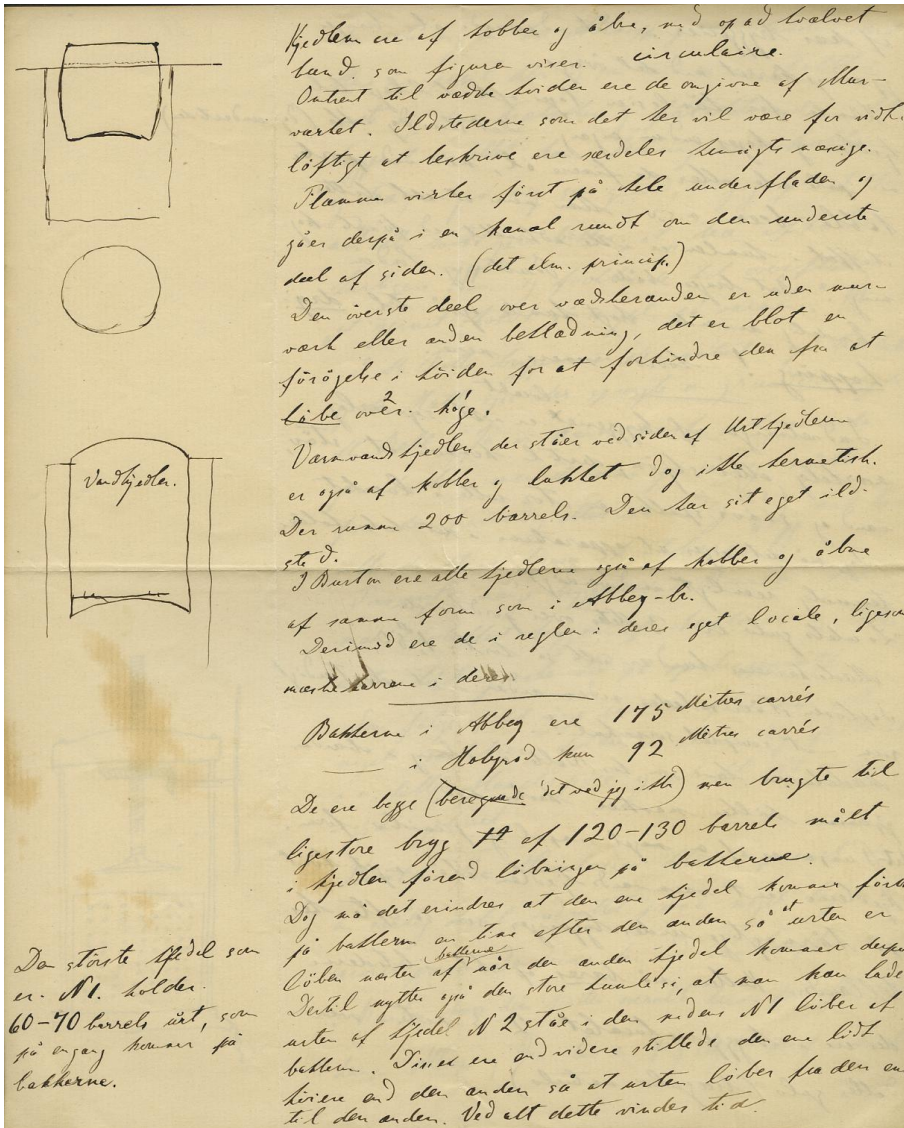 Kjedlerne ere af kobber og åbne, med opad hvælvet
bund, som figuren viser. circulaire.
Omtrent til vædske höiden ere de omgivne af Mur-
værket. Ildstederne som det her vil være for vidt-
löftigt at beskrive ere særdeles hensigts mæssige.
Flammen virker först på hele underfladen og
gåer derpå i en kanal rundt om den underste
deel af siden. (det alm. princip.)
Den överste deel over vædskeranden er uden mur-
værk eller anden beklædning, det er blot en
forögelse i höiden for at forhindre den fra at
löbe over. 2 höge.
Varmvandskjedlen der ståer ved siden af Urtkjedlerne
er også af kobber og lukket dog ikke hermetisk.
Der rummer 200 barrels. Den har sit eget ild-
sted.
I Burton ere alle kjedlerne også af kobber og åbne
af samme form som i Abbey-br.
Derimod ere de i reglen i deres eget locale, ligesom
mæskekarrene i deres
Bakkerne i Abbey ere 175 Mètres carrés
— i Holyrod kun 92 Mètres carrés
De ere begge (beregnede det ved jeg ikke) men brugte til
ligestore bryg af 120-130 barrels målt
i kjedlen förend löbningen på bakkerne.
Dog må det erindres at den ene kjedel kommer först
på bakkerne en time efter den anden så at urten er
löben næsten af bakkerne når den anden kjedel kommer derpå
Dertil nyttes også den store humlesi, at man kan lade
urten af kjedel N 2 ståe i den medens N1 löber af
bakkerne. Disse ere endvidere stillede den ene lidt
höiere end den anden så at urten löber fra den ene
til den anden. Ved alt dette vindes tid.
Vandkjedler.
Den störste kjedel som
er N1. holder
60-70 barrels urt, som
på engang kommer på
bakkerne.